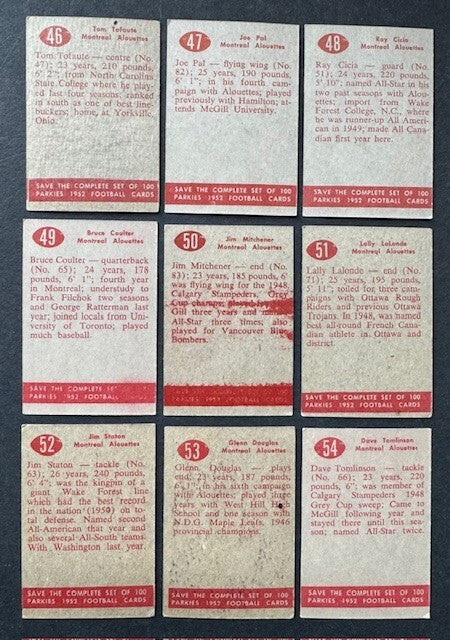 46
Tom Tofaute
Montreal Alouettes
Tom Tofaute — centre (No.
47); 23 years, 210 pounds,
6' 2"; from North Carolina
State College where he play-
ed last four seasons; ranked
in south as one of best line-
buckers; home, at Yorksville,
Ohio.
SAVE THE COMPLETE SET OF 100
PARKIES 1952 FOOTBALL CARDS
47
Joe Pal
Montreal Alouettes
Joe Pal — flying wing (No.
82); 25 years, 190 pounds,
6' 1"; in his fourth cam-
paign with Alouettes; played
previously with Hamilton; at-
tends McGill University.
SAVE THE COMPLETE SET OF 100
PARKIES 1952 FOOTBALL CARDS
48
Ray Cicia
Montreal Alouettes
Ray Cicia — guard (No.
51); 24 years, 220 pounds,
5' 10"; named All-Star in his
two past seasons with Alou-
ettes; import from Wake
Forest College, N.C., where
he was runner-up All Ameri-
can in 1949; made All Cana-
dian first year here.
SAVE THE COMPLETE SET OF 100
PARKIES 1952 FOOTBALL CARDS
49
Bruce Coulter
Montreal Alouettes
Bruce Coulter — quarterback
(No. 65); 24 years, 178
pounds, 6' 1"; fourth year
in Montreal; understudy to
Frank Filchok two seasons
and George Ratterman last
year; joined locals from Uni-
versity of Toronto; played
much baseball.
SAVE THE COMPLETE SET OF 100
PARKIES 1952 FOOTBALL CARDS
50
Jim Mitchener
Montreal Alouettes
Jim Mitchener — end (No.
83); 23 years, 185 pounds, 6'
was flying wing for the 1948
Calgary Stampeders, Grey
Cup champs; played
Gill three years and
All-Star three times; also
played for Vancouver Blue
Bombers.
SAVE THE COMPLETE SET OF 100
PARKIES 1952 FOOTBALL CARDS
51
Lally LaLonde
Montreal Alouettes
Lally Lalonde — end (No.
71); 25 years, 195 pounds,
5' 11"; toiled for three cam-
paigns with Ottawa Rough
Riders and previous Ottawa
Trojans. In 1948, was named
best all-round French Cana-
dian athlete in Ottawa and
district.
SAVE THE COMPLETE SET OF 100
PARKIES 1952 FOOTBALL CARDS
52
Jim Staton
Montreal Alouettes
Jim Staton — tackle (No.
63); 26 years, 240 pounds,
6' 4"; was the kingpin of a
giant Wake Forest line
which had the best record
in the nation (1950) on to-
tal defense. Named second
All-American that year and
also several All-South teams.
With Washington last year.
SAVE THE COMPLETE SET OF 100
PARKIES 1952 FOOTBALL CARDS
53
Glenn Douglas
Montreal Alouettes
Glenn Douglas — plays
end; 23 years, 187 pounds,
6' 1"; in his sixth campaign
with Alouettes; played three
years with West Hill High
School and one season with
N.D.G. Maple Leafs, 1946
provincial champions.
SAVE THE COMPLETE SET OF 100
PARKIES 1952 FOOTBALL CARDS
54
Dave Tomlinson
Montreal Alouettes
Dave Tomlinson — tackle
(No. 66); 23 years, 220
pounds, 6"; was member of
Calgary Stampeders 1948
Grey Cup sweep; Came to
McGill following year and
stayed there until this sea-
son; named All-Star twice.
SAVE THE COMPLETE SET OF 100
PARKIES 1952 FOOTBALL CARDS